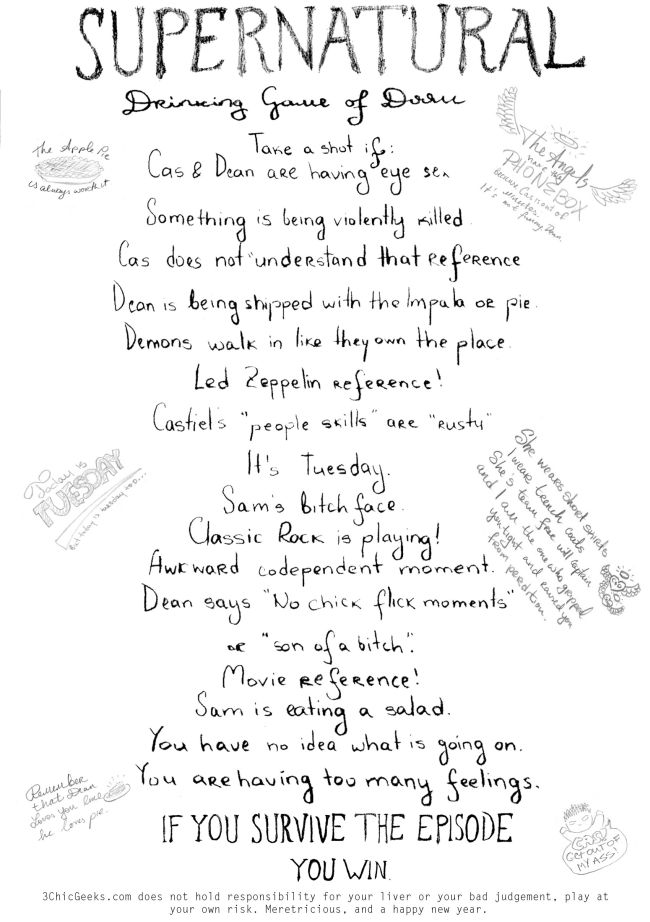 SUPERNATURAL
Drinking Game of Doom
Take a shot if:
Cas & Dean are having eye sex
The Apple Pie
is always worth it
The Angels
have the
PHONEBOX
because Cas ran out of
minutes.
It's not funny, Dean.
Something is being violently killed.
Cas does not understand that reference
Dean is being shipped with the Impala or pie.
Demons walk in like they own the place.
Led Zeppelin reference!
Castiel's "people skills" are "rusty"
It's Tuesday.
Today is
TUESDAY
but today is tuesday too...
Sam's Bitch face.
Classic Rock is playing!
Awkward codependent moment.
She wears short skirts
I wear trench coats
She's team free will captain
and I am the one who gripped
you tight and raised you
from perdition.
Dean says "No chick flick moments"
or "son of a bitch".
Movie reference!
Sam is eating a salad.
You have no idea what is going on.
You are having too many feelings.
Remember
that Dean
loves you like
he loves pie.
IF YOU SURVIVE THE EPISODE
YOU WIN.
GET OUT OF
MY ASS!
3ChicGeeks.com does not hold responsibility for your liver or your bad judgement, play at
your own risk. Meretricious, and a happy new year.